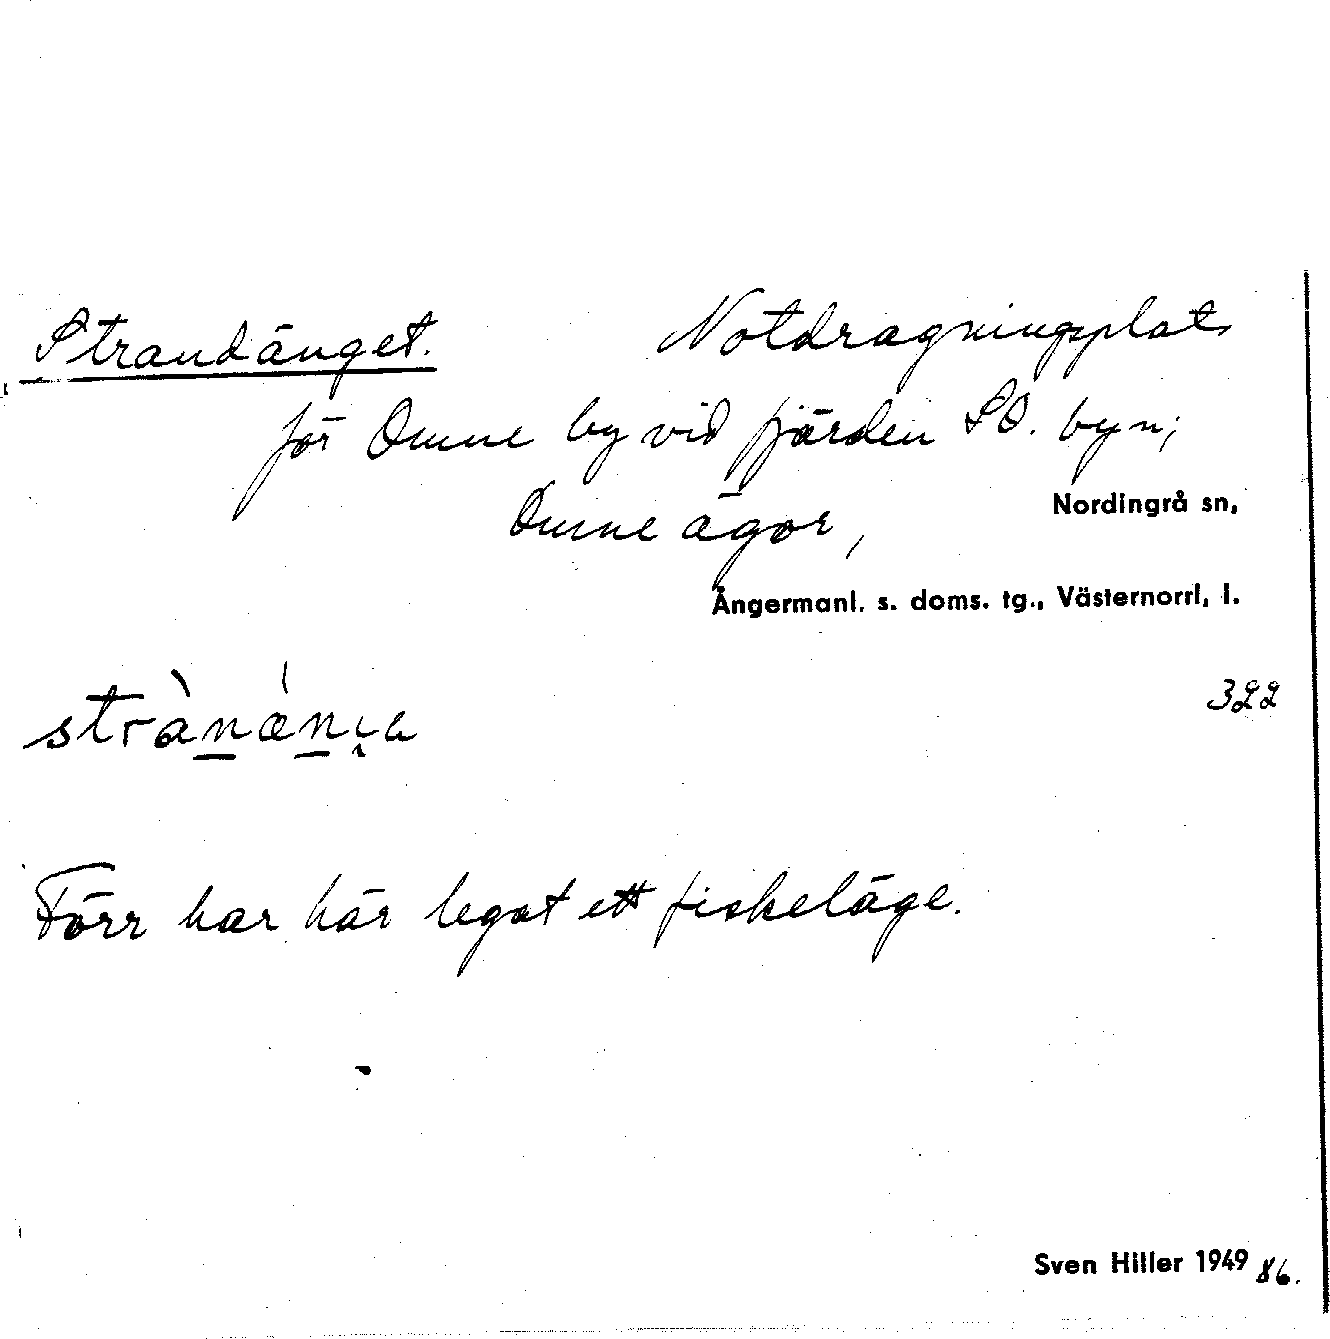 Strandänget. Notdragningsplats
för Omne by vid fjärden SO. byn;
Omne ägor,
Nordingrå sn,
Ångermanl. s. doms. tg., Västernorrl. l.
322
Förr har här legat ett fiskeläge.
Sven Hiller 1949 86.